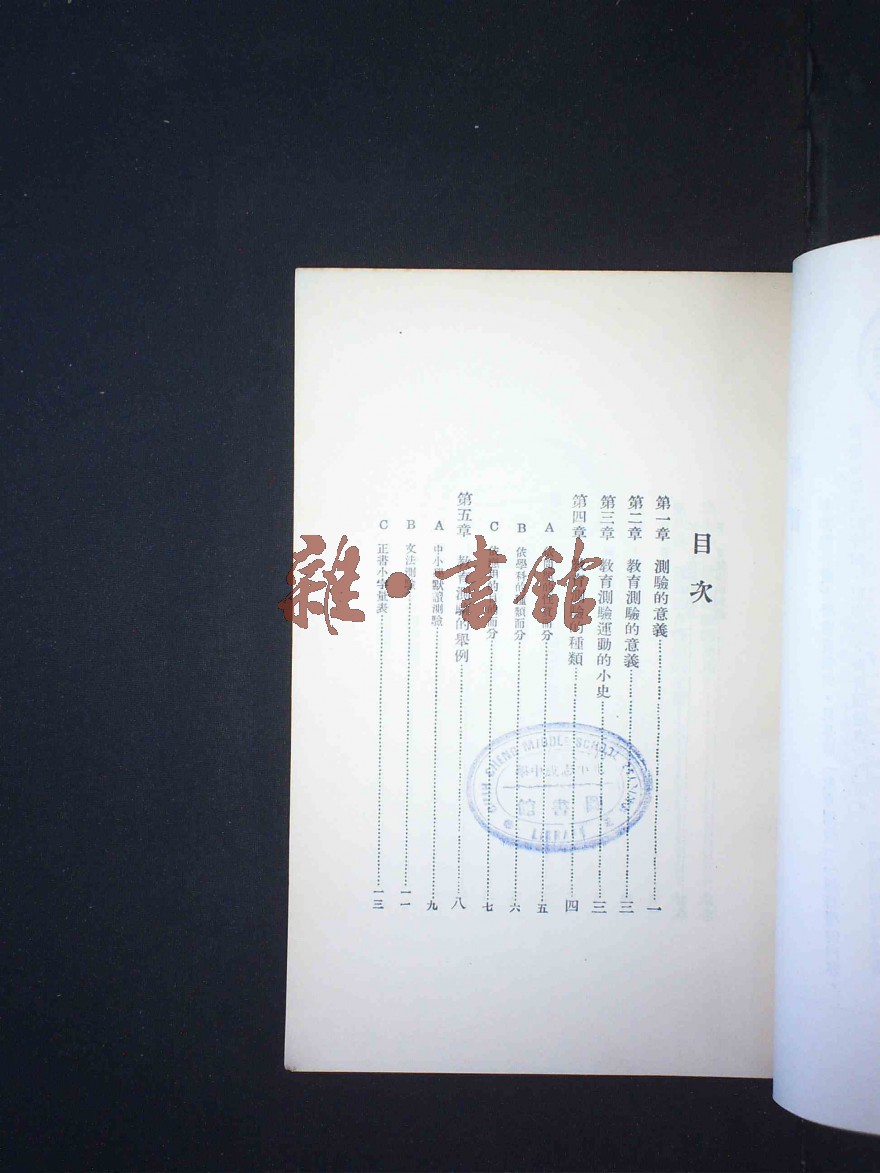 目次
第一章 測驗的意義 一
第二章 教育測驗的意義 三
第三章 教育測驗運動的小史 三
第四章 種類 四
A 分 五
B 依學科的種類而分 六
C 而分 七
第五章 教育測驗的舉例 八
A 中小 默讀測驗 九
B 文法測 一一
C 正書小字量表 一三
雜·書館
MIDDLE SCHOOL
圖書館